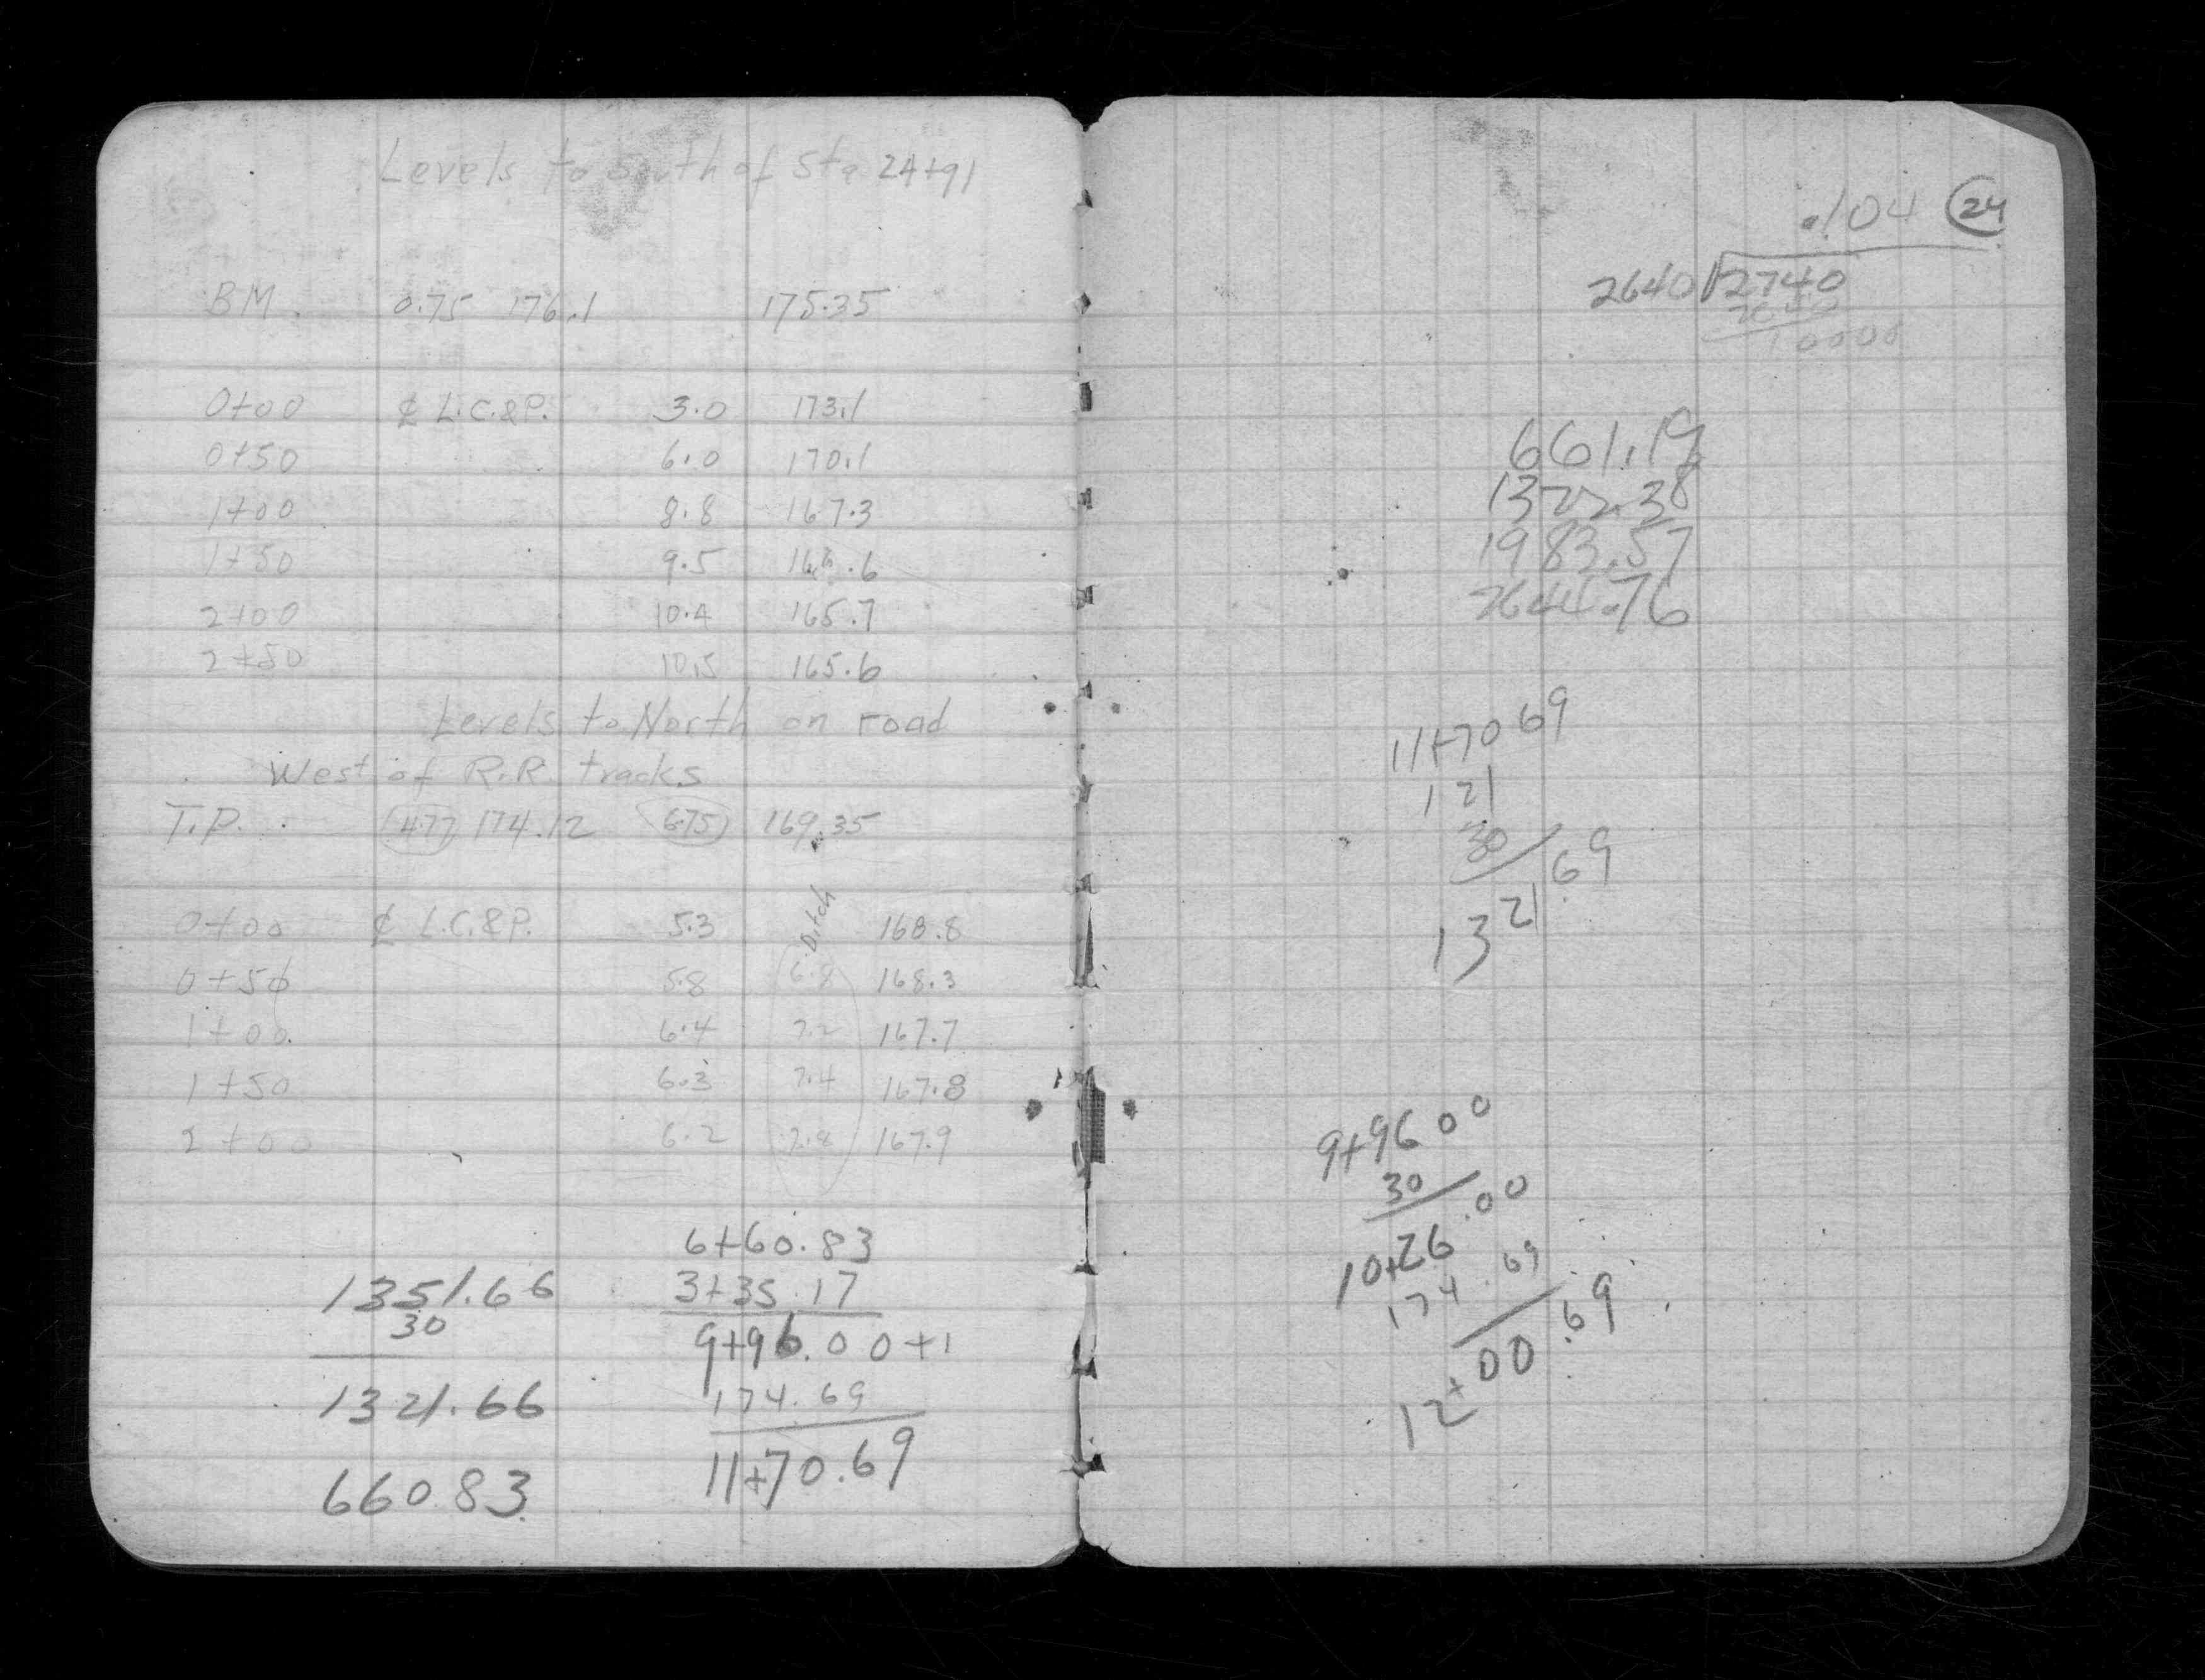 Levels to South of Sta 24+91
BM. 0.75 176.1 175.35
0+00 ℄ L.C.&P. 3.0 173.1
0+50 6.0 170.1
1+00 8.8 167.3
1+50 9.5 166.6
2+00 10.4 165.7
2+50 10.5 165.6
Levels to North on road
West of R.R. tracks
T.P. 4.77 174.12 6.75 169.35
Ditch
0+00 ℄ L.C.&P. 5.3 168.8
0+50 5.8 6.8 168.3
1+00 6.4 7.2 167.7
1+50 6.3 7.4 167.8
2+00 6.2 7.8 167.9
1351.66
30
1321.66
660.83
6+60.83
3+35.17
9+96.00+1
174.69
11+70.69
24
.104
2640 2740
2640
10000
661.19
1322.38
1983.57
2644.76
11+70 69
1 21
30
13 21.69
9+96 00
30
10+26.00
174.69
12+00.69